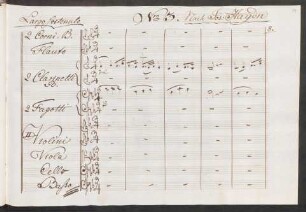 Largo Sostenuto
No. 3.
2 Corni. B.
Flauto
2 Clarinetti
2 Fagotti
Violini
Viola
Cello
Basso